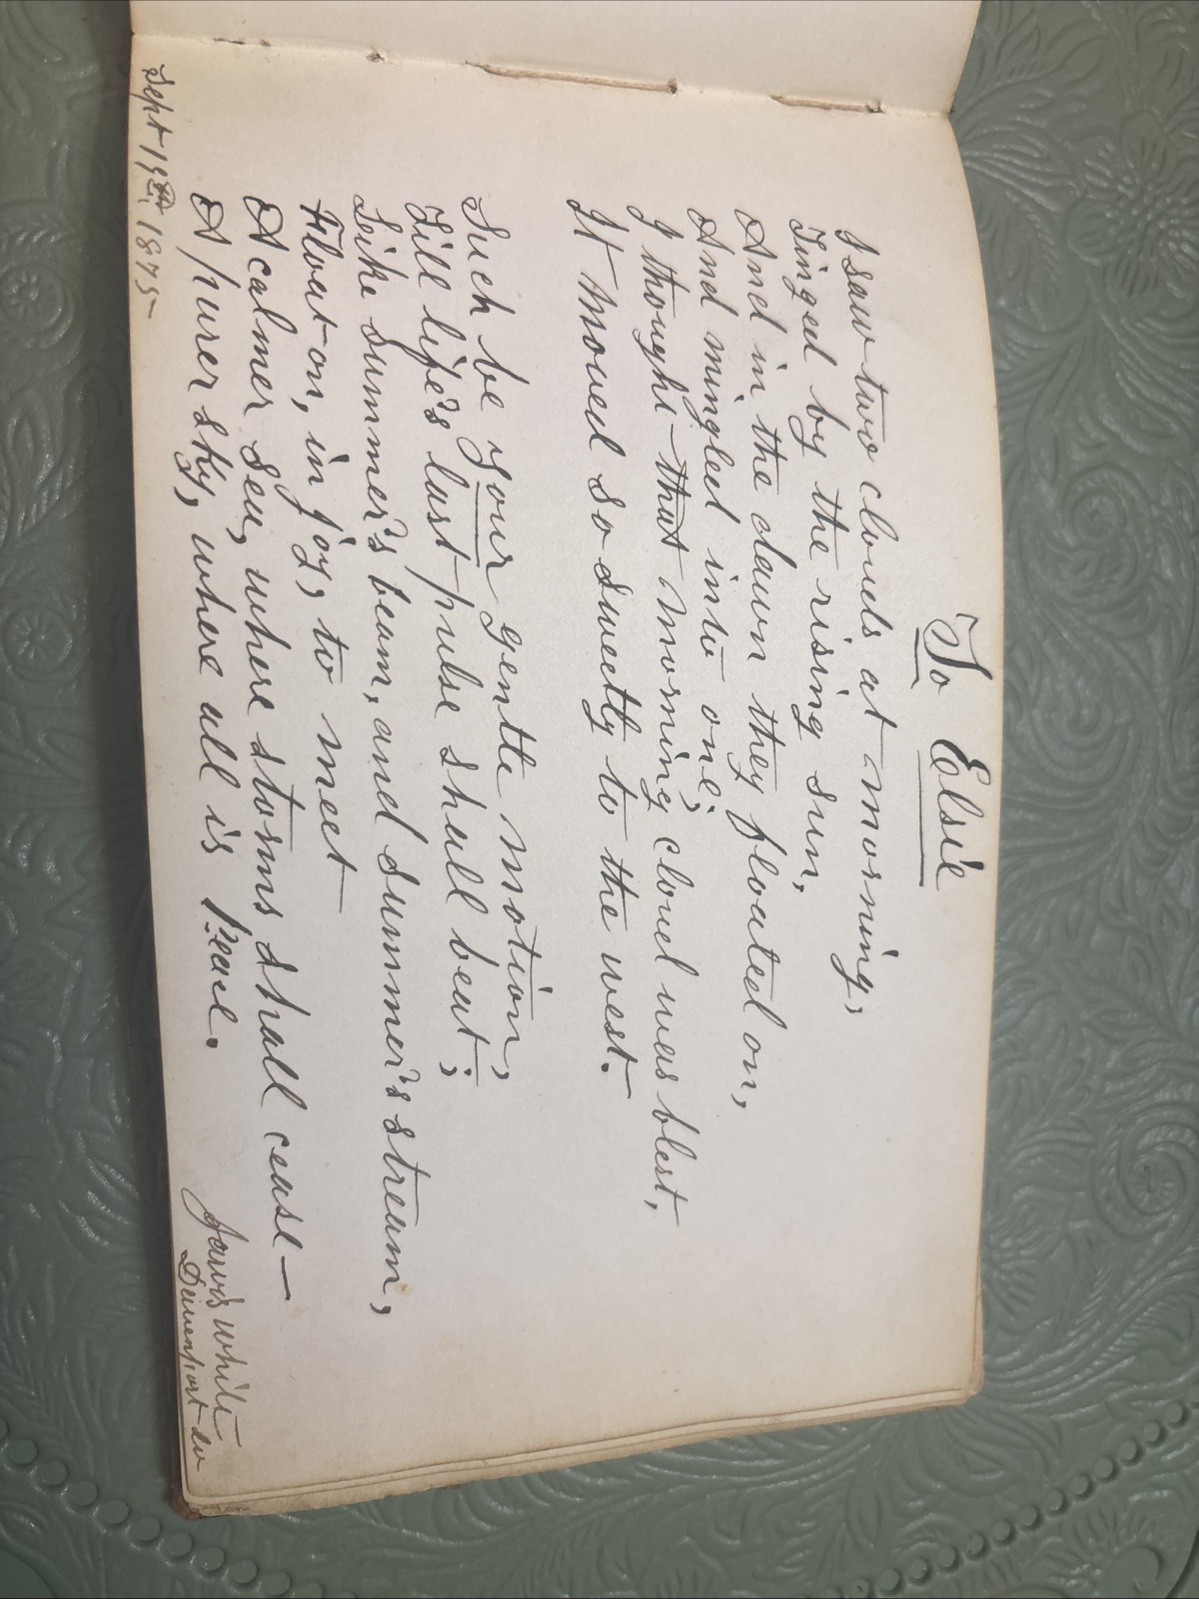 To Elsie
I saw two clouds at morning,
Tinged by the rising sun,
And in the dawn they floated on,
And mingled into one;
I thought that morning cloud was blest,
It moved so sweetly to the west.
Such be your gentle motion,
Till life's last pulse shall beat;
Like summer's beam, and summer's stream,
Float on, in joy, to meet
A calmer sea, where storms shall cease—
A purer sky, where all is Peace.
Sept 19th, 1875
White
Davenport